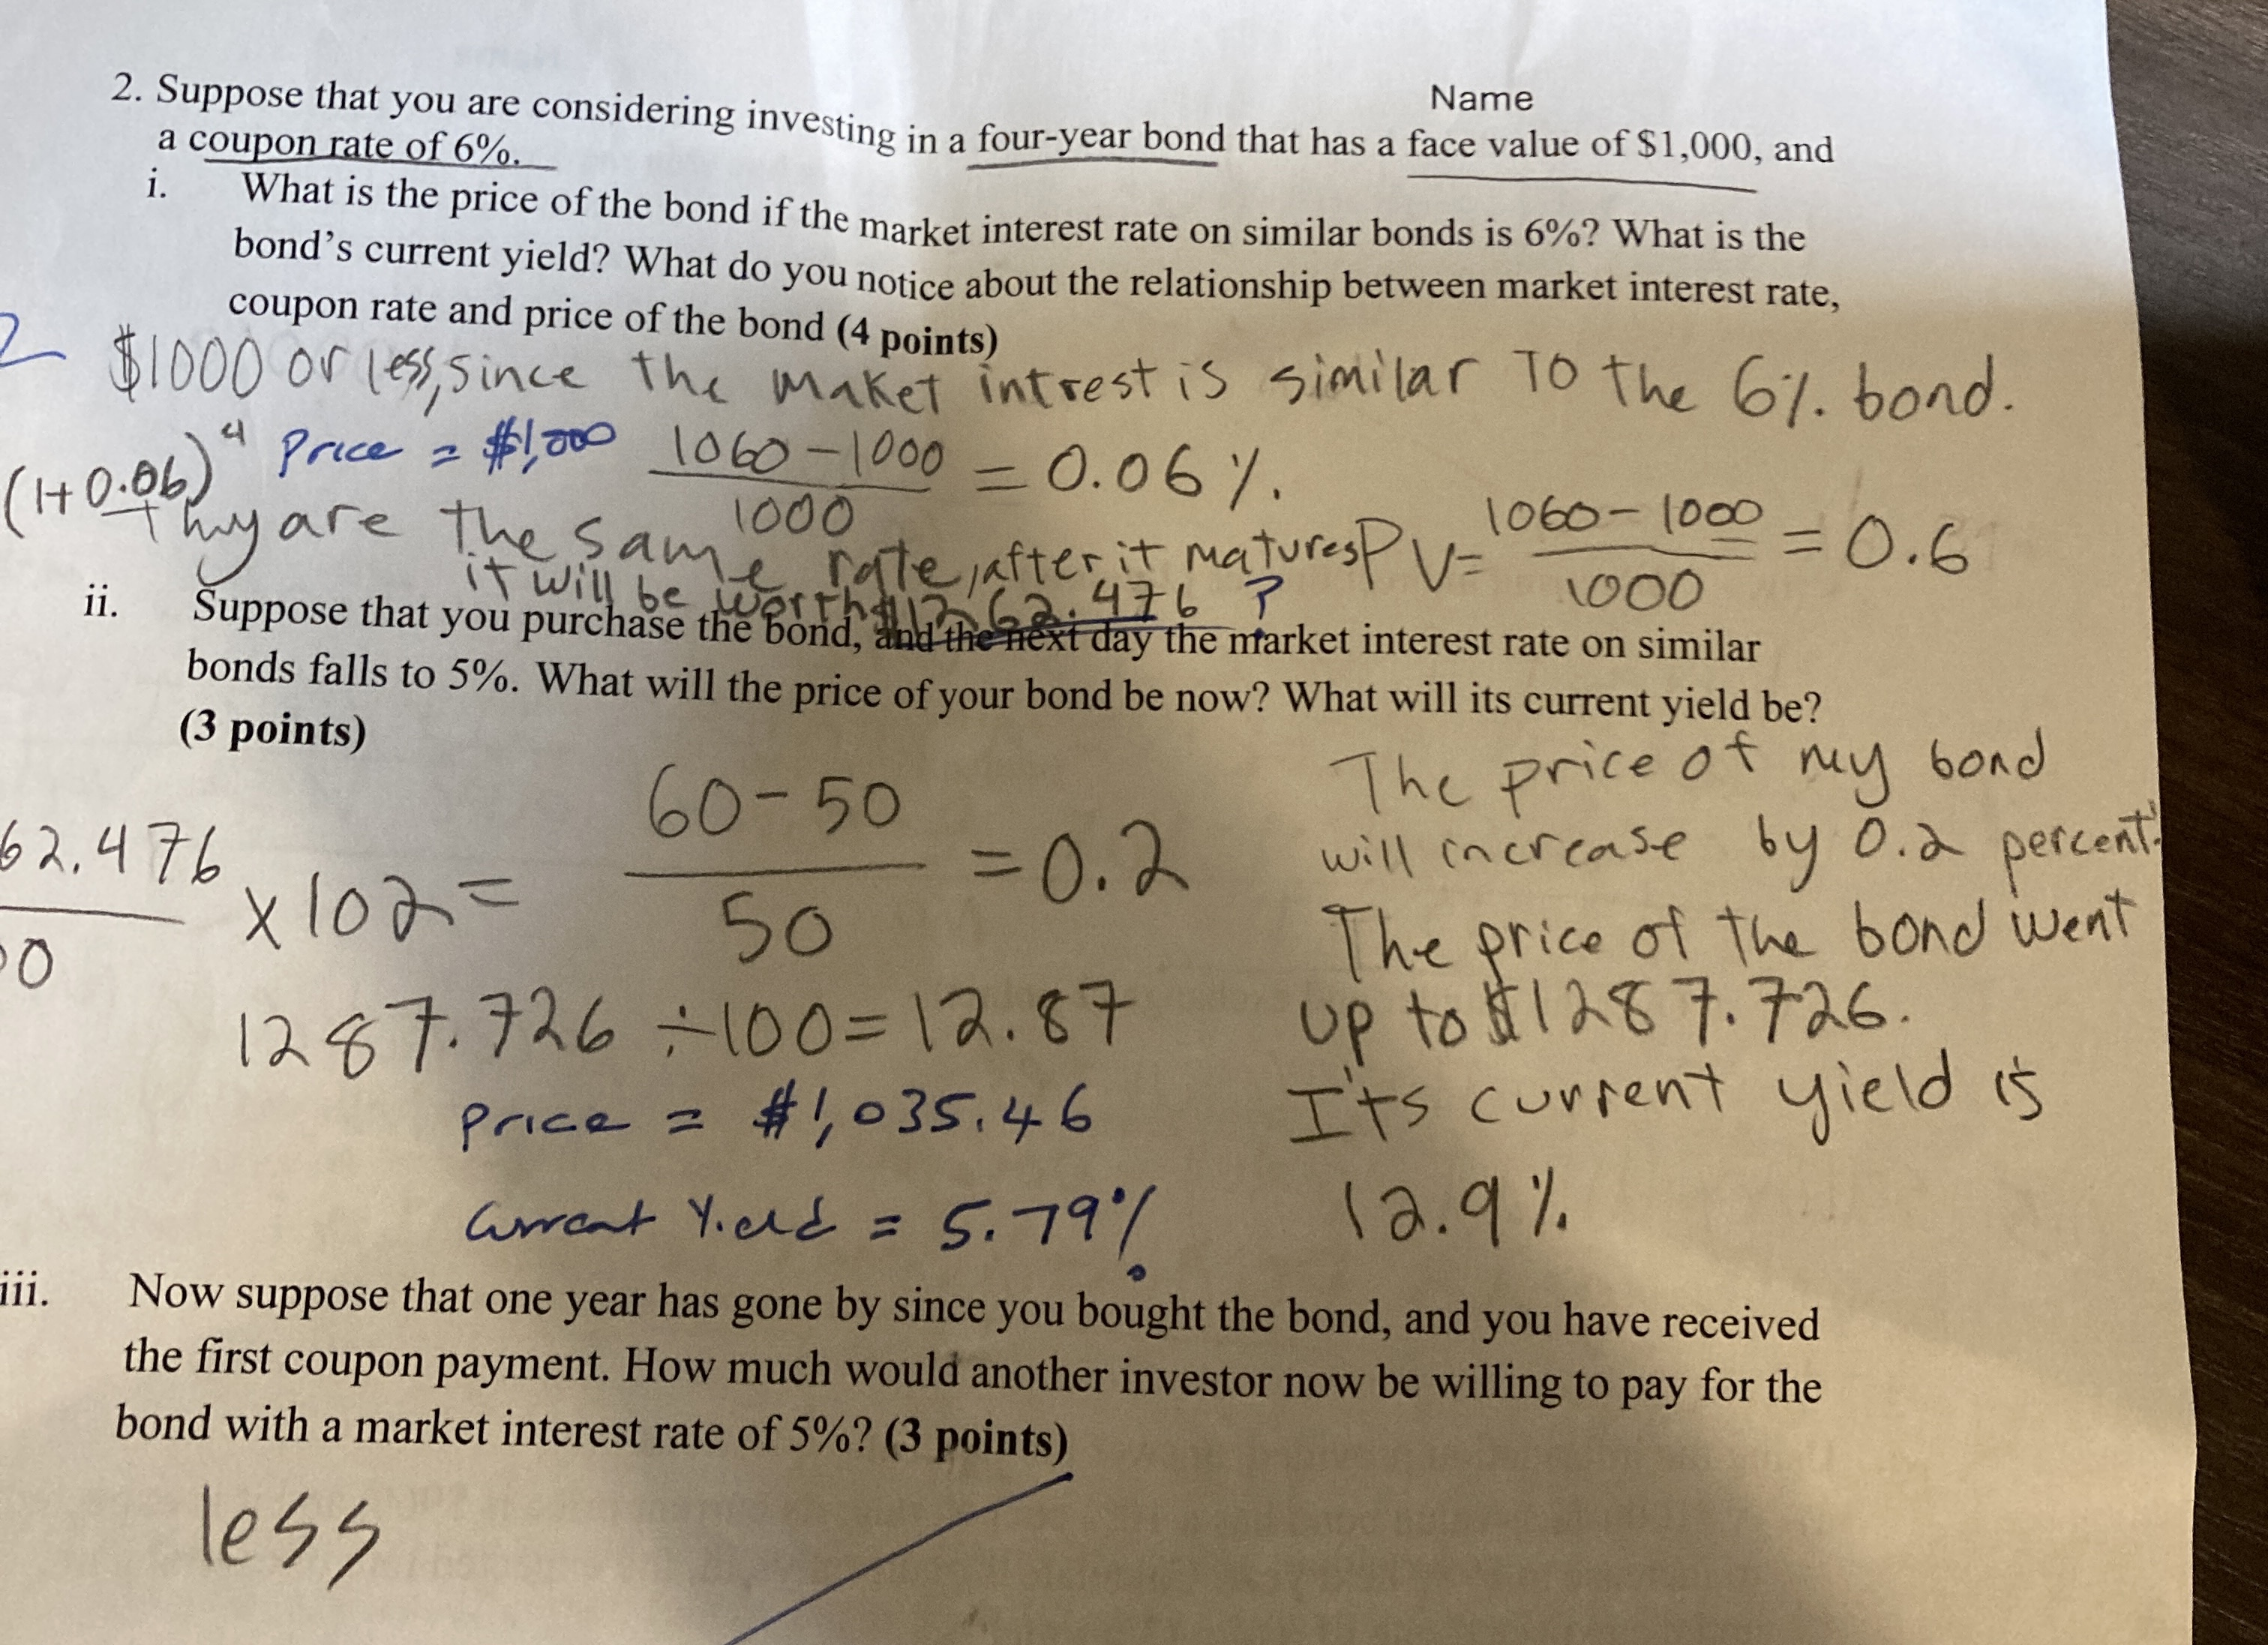 Name
2. Suppose that you are considering investing in a four-year bond that has a face value of $1,000, and
a coupon rate of 6%.
i. What is the price of the bond if the market interest rate on similar bonds is 6%? What is the
bond's current yield? What do you notice about the relationship between market interest rate,
coupon rate and price of the bond (4 points)
2 $1000 or less, since the maket intrest is similar To the 6% bond.
(1+0.06)^4 Price = $1,000 1060-1000/1000 = 0.06%.
Thy are the same rate, after it matures PV= 1060-1000/1000 = 0.6
it will be worth $1262.476 ?
ii. Suppose that you purchase the bond, and the next day the market interest rate on similar
bonds falls to 5%. What will the price of your bond be now? What will its current yield be?
(3 points)
62.476/00 x102= 60-50/50 = 0.2
1287.726 ÷100=12.87
Price = $1,035.46
Current Yield = 5.79%
The price of my bond
will increase by 0.2 percent.
The price of the bond went
up to $1287.726.
It's current yield is
12.9%
iii. Now suppose that one year has gone by since you bought the bond, and you have received
the first coupon payment. How much would another investor now be willing to pay for the
bond with a market interest rate of 5%? (3 points)
less